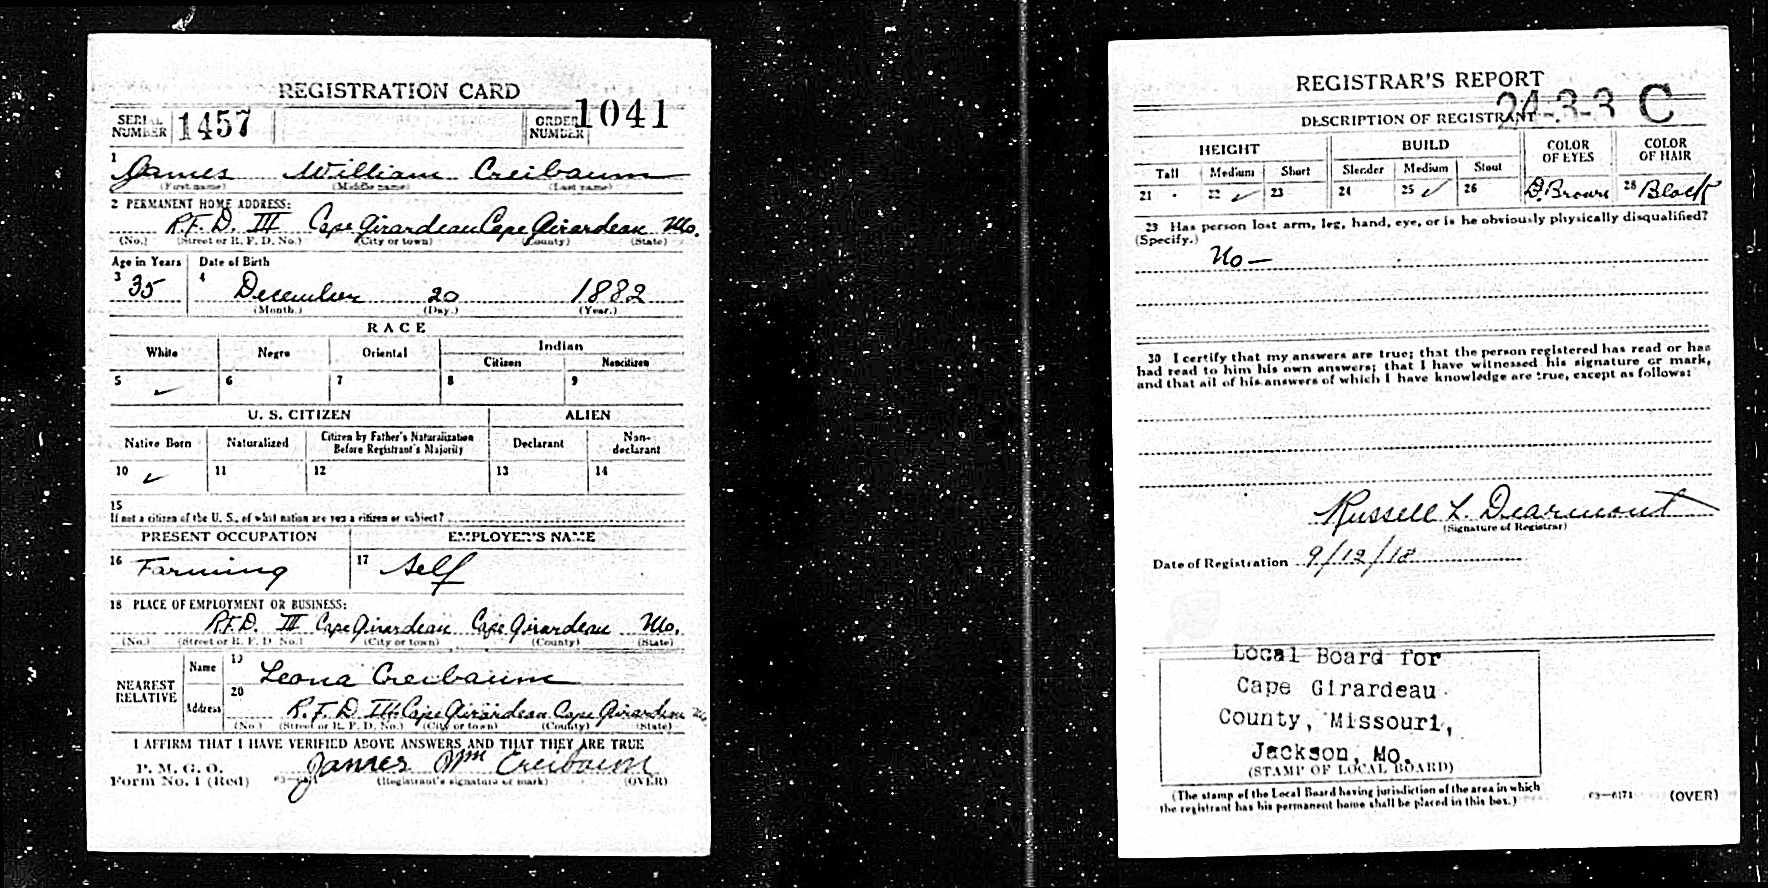 REGISTRATION CARD
SERIAL NUMBER 1457 ORDER NUMBER 1041
1 James William Creibaum
(First name) (Middle name) (Last name)
2 PERMANENT HOME ADDRESS:
R.F.D. III Cape Girardeau Cape Girardeau Mo.
(No.) (Street or R. F. D. No.) (City or town) (County) (State)
Age in Years Date of Birth
3 35 4 December 20 1882
(Month.) (Day.) (Year.)
RACE
White Negro Oriental Indian
Citizen Noncitizen
5 ✓ 6 7 8 9
U. S. CITIZEN ALIEN
Native Born Naturalized Citizen by Father's Naturalization Before Registrant's Majority Declarant Non-declarant
10 ✓ 11 12 13 14
15
If not a citizen of the U. S., of what nation are you a citizen or subject?
PRESENT OCCUPATION EMPLOYER'S NAME
16 Farming 17 Self
18 PLACE OF EMPLOYMENT OR BUSINESS:
R.F.D. III Cape Girardeau Cape Girardeau Mo.
(No.) (Street or R. F. D. No.) (City or town) (County) (State)
NEAREST RELATIVE Name 19 Leona Creibaum
Address 20 R.F.D. III Cape Girardeau Cape Girardeau Mo
(No.) (Street or R. F. D. No.) (City or town) (County) (State)
I AFFIRM THAT I HAVE VERIFIED ABOVE ANSWERS AND THAT THEY ARE TRUE
P. M. G. O.
Form No. 1 (Red) James Wm Creibaum
(Registrant's signature or mark) (OVER)
REGISTRAR'S REPORT
24-3-3 C
DESCRIPTION OF REGISTRANT
HEIGHT BUILD COLOR OF EYES COLOR OF HAIR
Tall Medium Short Slender Medium Stout
21 22 ✓ 23 24 25 ✓ 26 D. Brown 28 Black
29 Has person lost arm, leg, hand, eye, or is he obviously physically disqualified?
(Specify.)
No
30 I certify that my answers are true; that the person registered has read or has
had read to him his own answers; that I have witnessed his signature or mark,
and that all of his answers of which I have knowledge are true, except as follows:
Russell L. Dearmont
(Signature of Registrar)
Date of Registration 9/12/18
Local Board for
Cape Girardeau
County, Missouri,
Jackson, Mo.
(STAMP OF LOCAL BOARD)
(The stamp of the Local Board having jurisdiction of the area in which
the registrant has his permanent home shall be placed in this box.)
03—6171 (OVER)